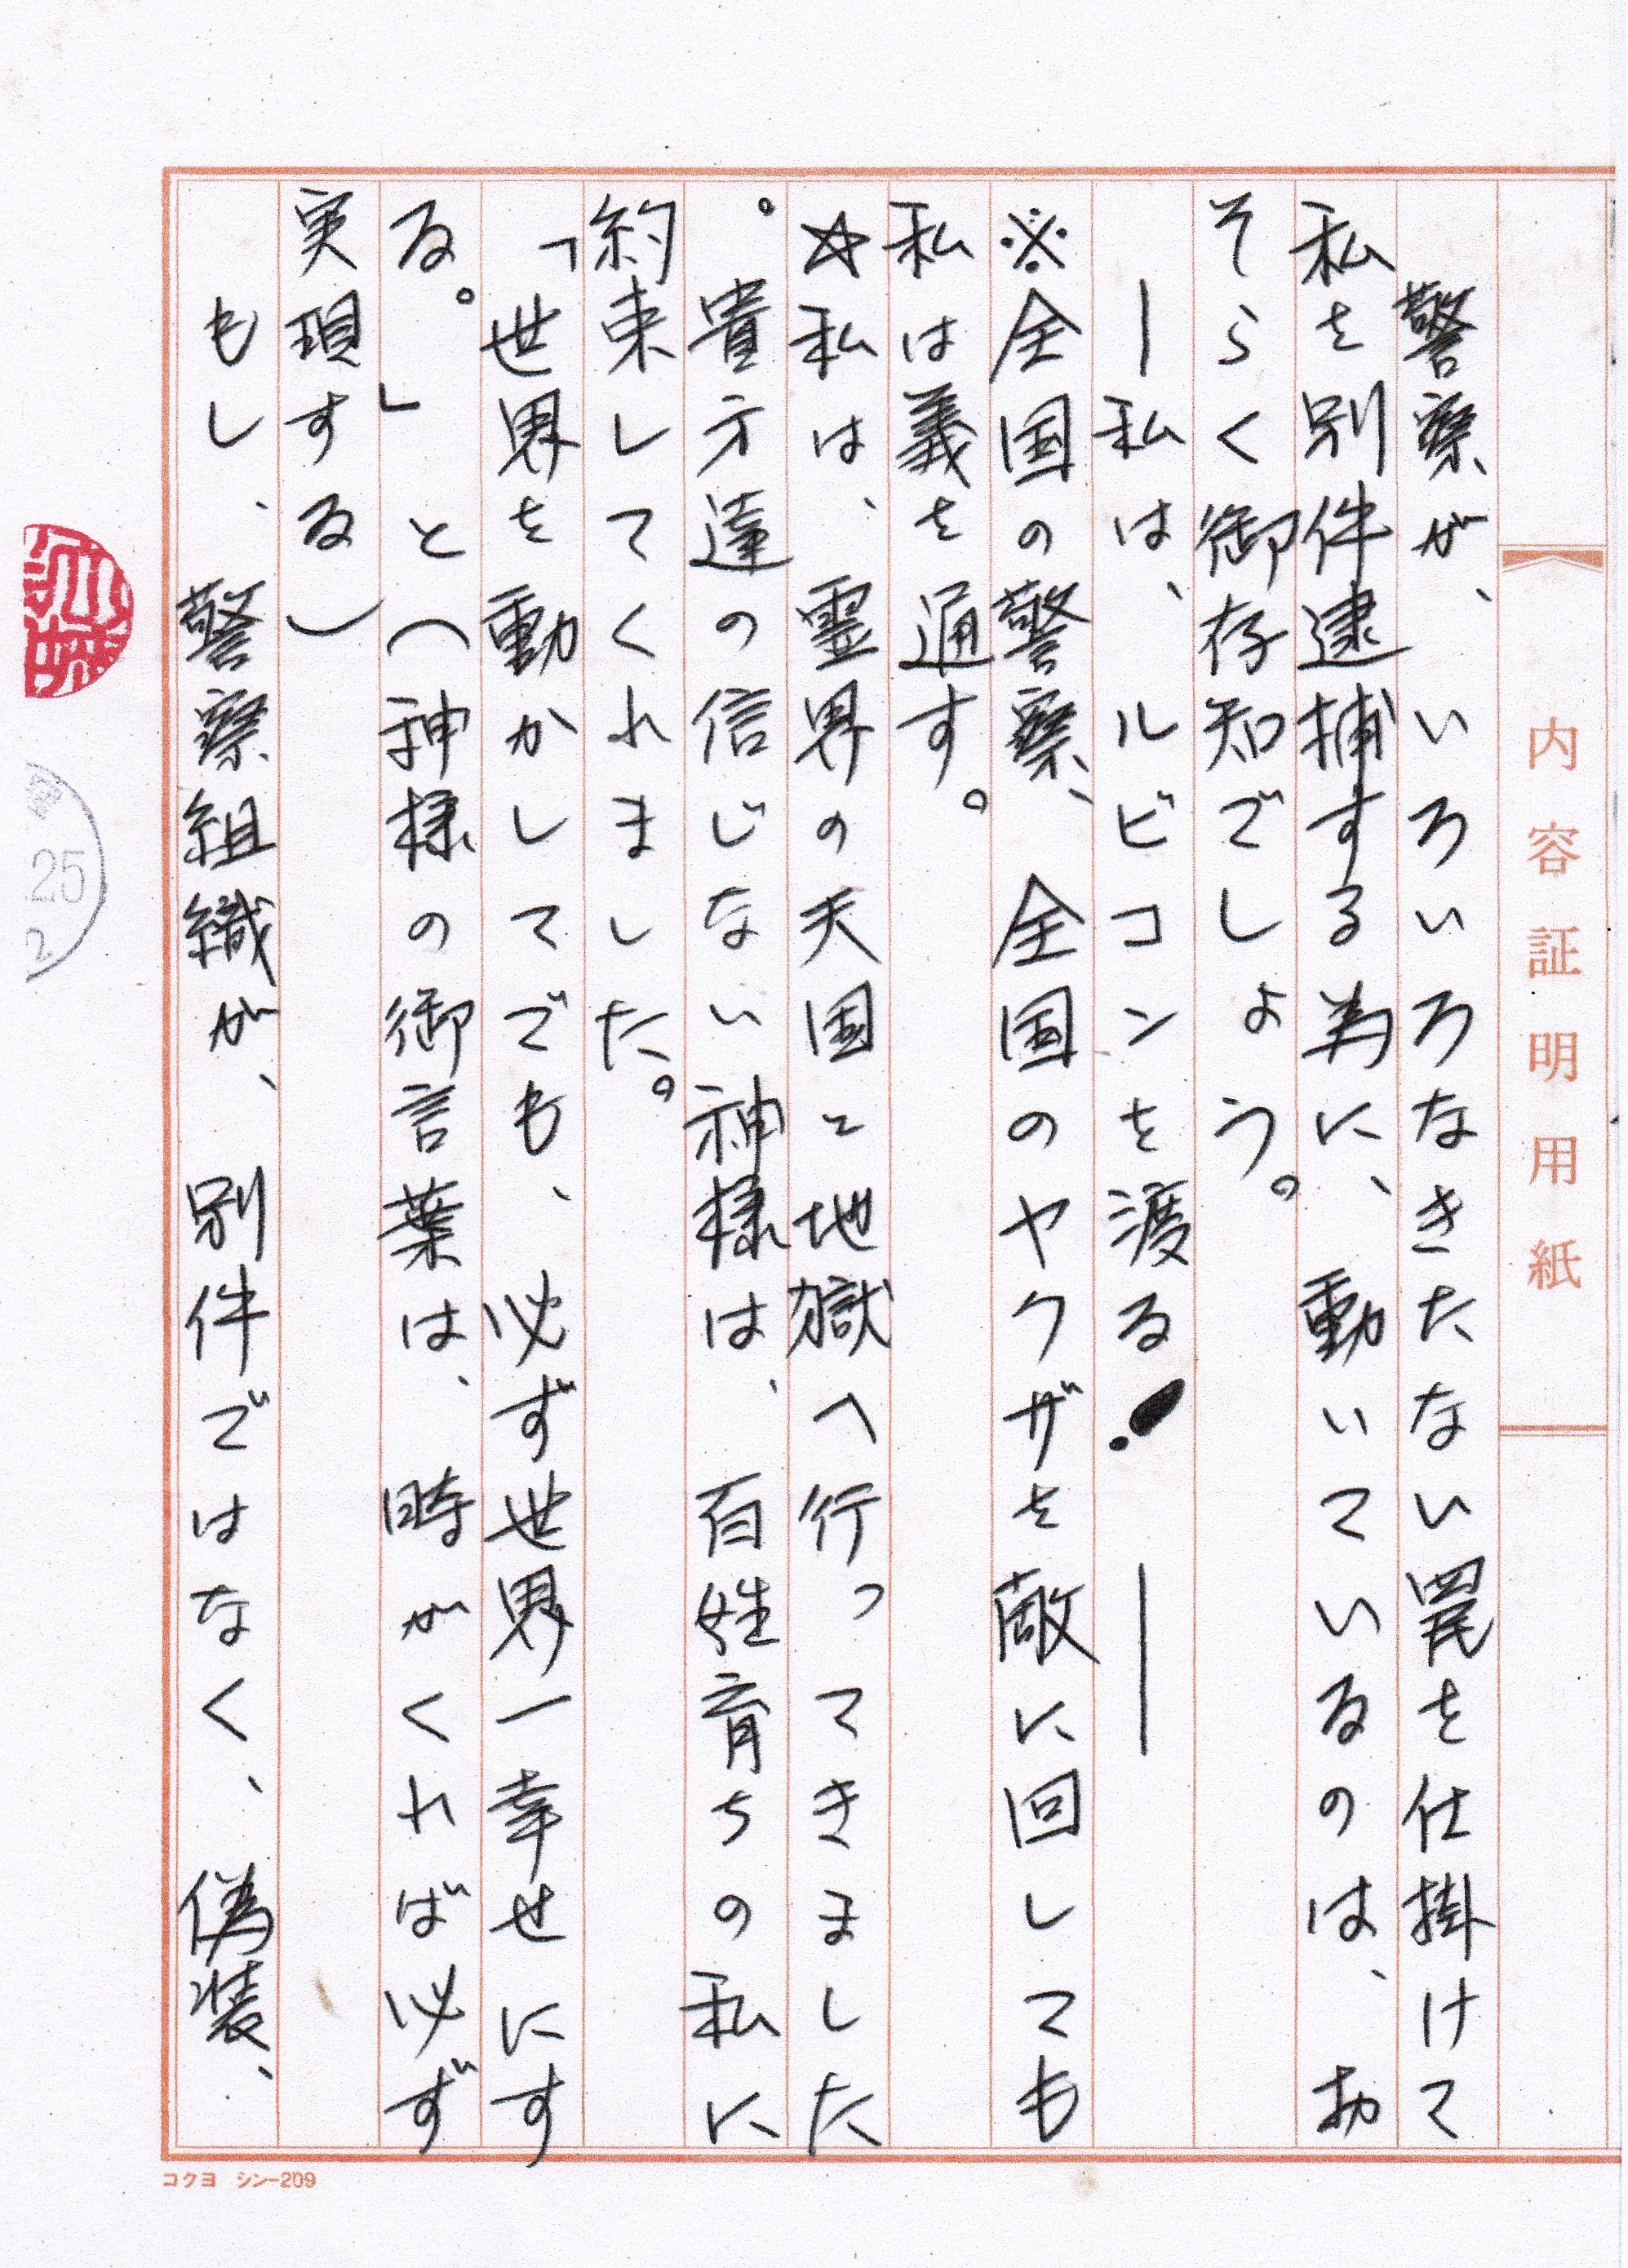 内容証明用紙
警察が、いろいろなきたない罠を仕掛けて
私を別件逮捕する為に、動いているのは、お
そらく御存知でしょう。
―私は、ルビコンを渡る!―
※全国の警察、全国のヤクザを敵に回しても
私は義を通す。
☆私は、霊界の天国と地獄へ行ってきました
。貴方達の信じない神様は、百姓育ちの私に
約束してくれました。
「世界を動かしてでも、必ず世界一幸せにす
る。」と(神様の御言葉は、時がくれば必ず
実現する)
もし、警察組織が、別件ではなく、偽装、
25
2
コクヨ シン-209